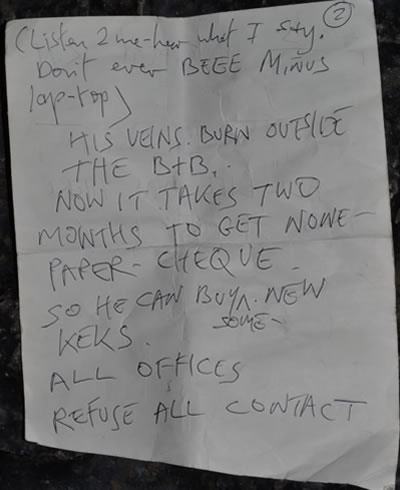 ②
(Listen 2 me-hear what I say.
Don't ever BEEE MINUS
lap-top)
HIS VEINS. BURN OUTSIDE
THE B+B.
NOW IT TAKES TWO
MONTHS TO GET NONE-
PAPER-CHEQUE.
SO HE CAN BUY^. NEW
SOME-
KEKS.
ALL OFFICES
REFUSE ALL CONTACT